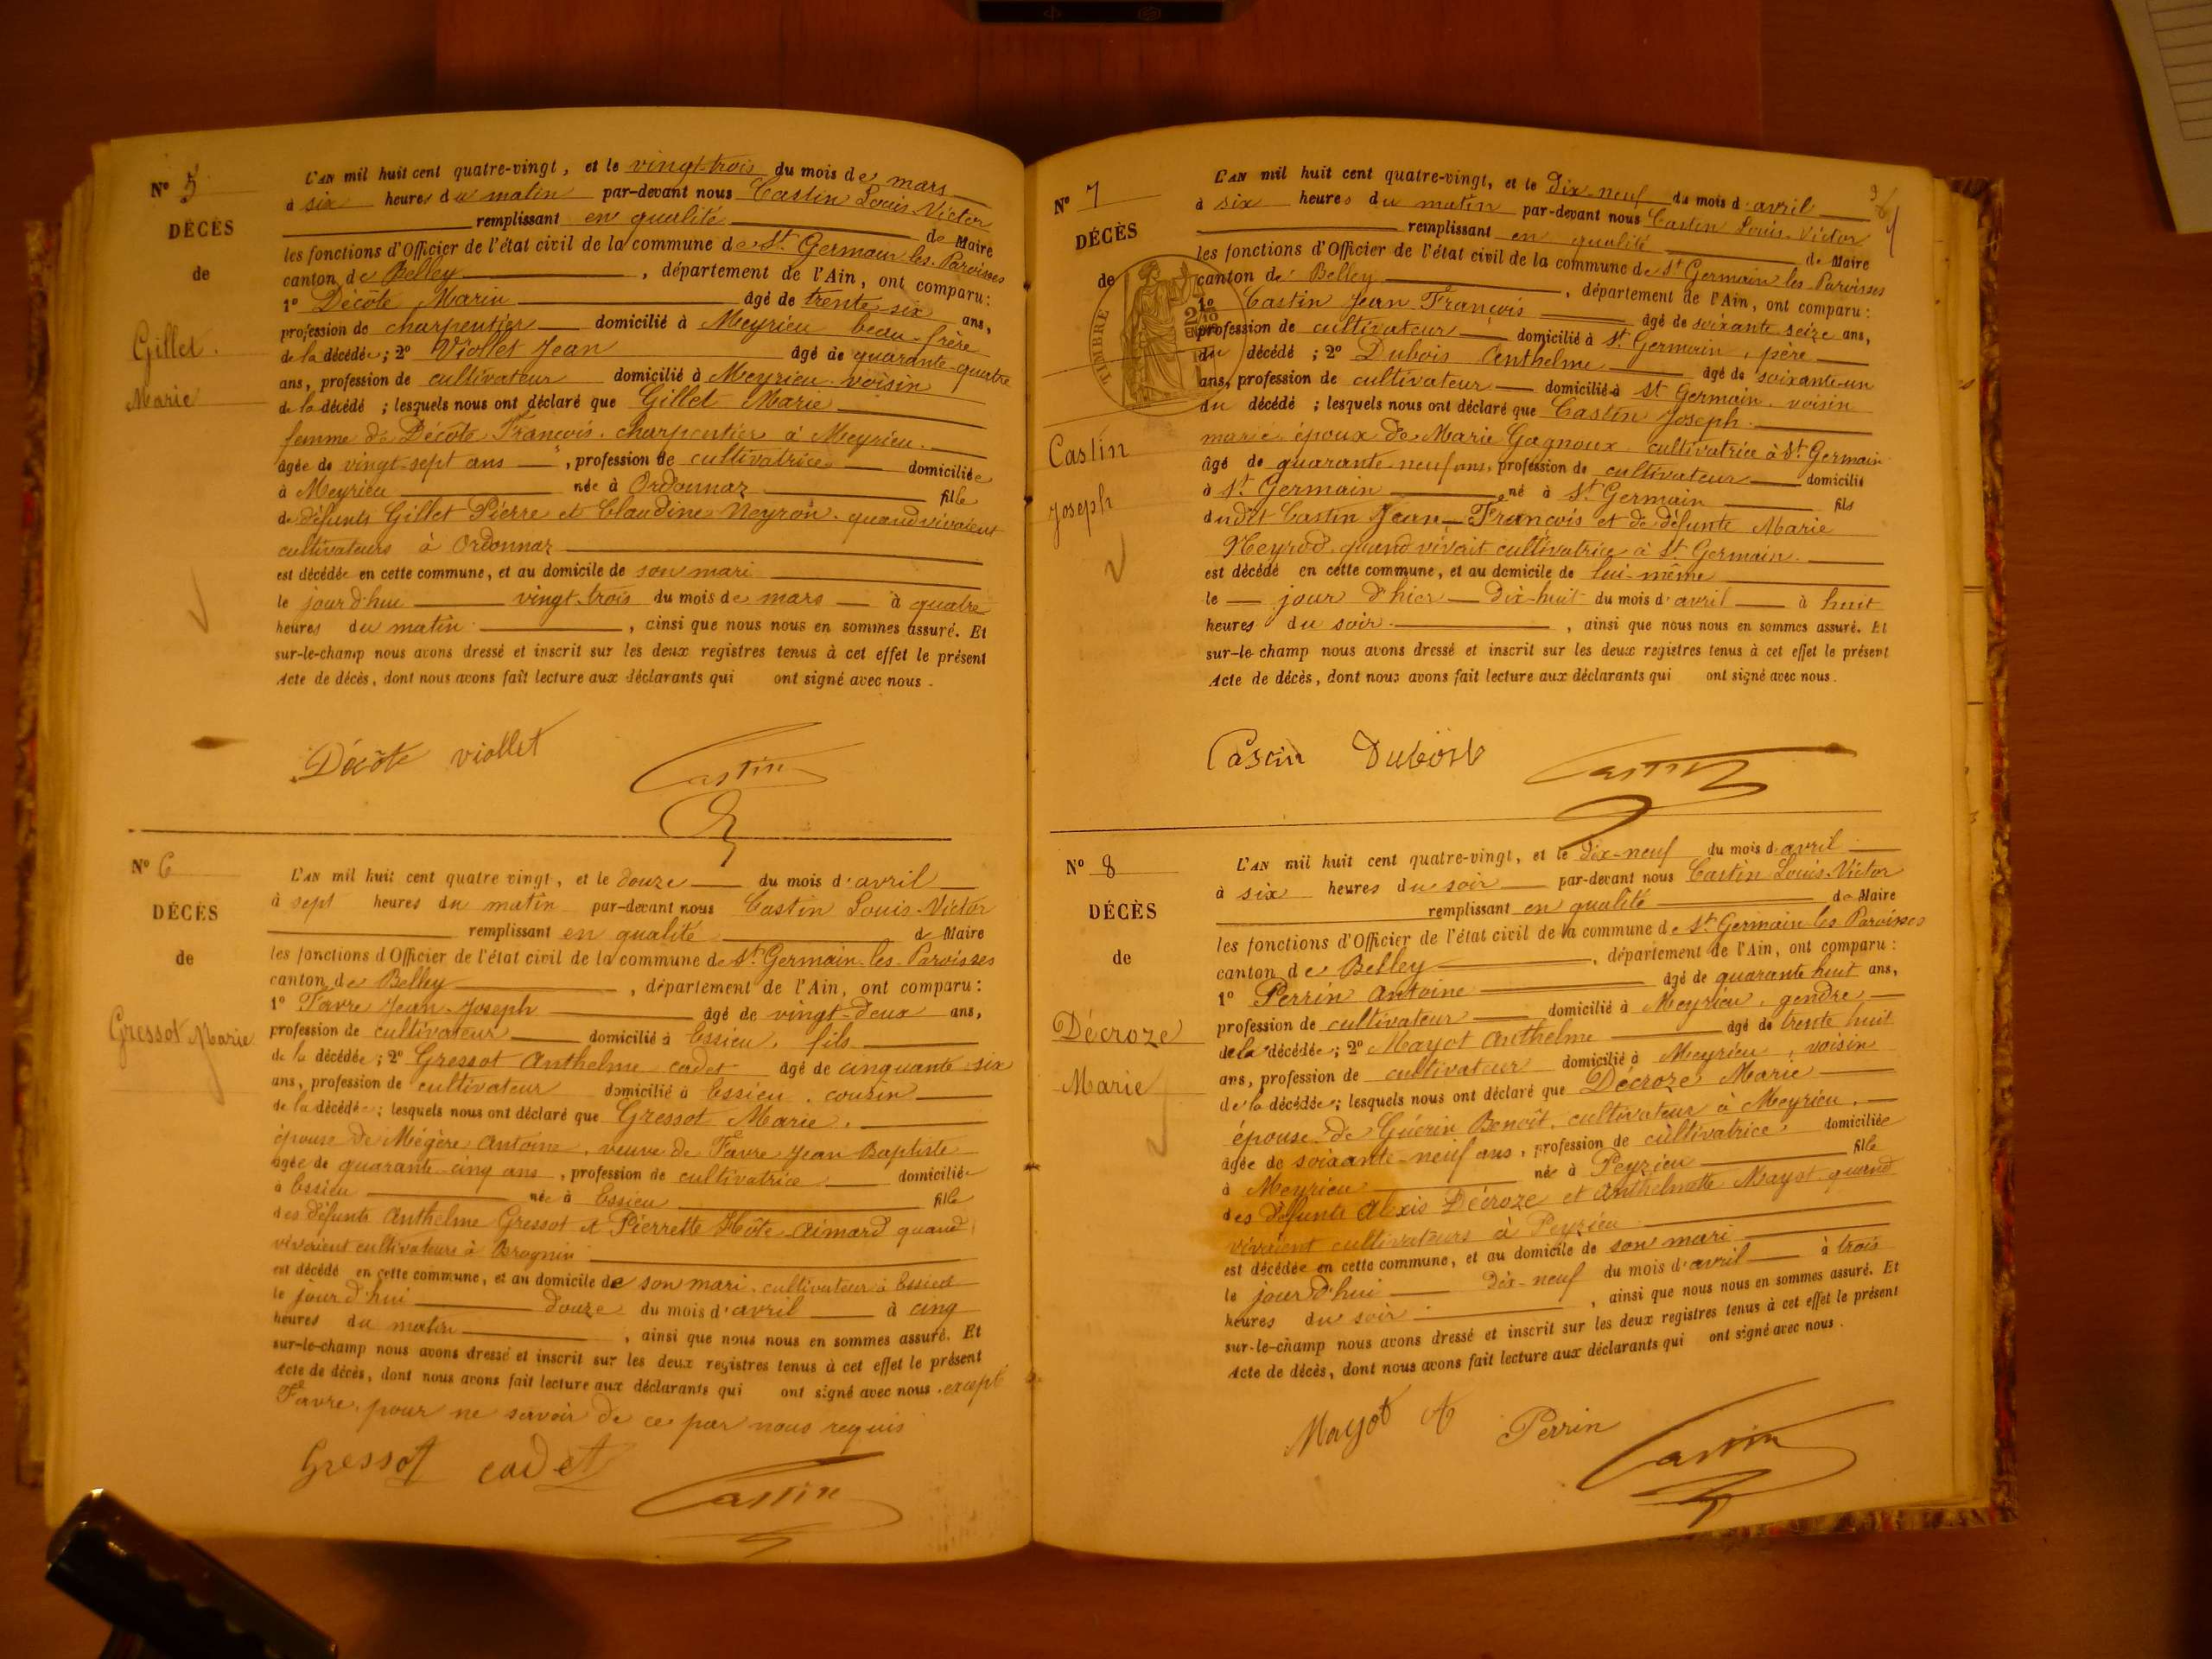 Nº 5
DÉCÈS
de
Gillet
Marie
L'AN mil huit cent quatre-vingt, et le vingt-trois du mois de mars
à six heures du matin par-devant nous Castin Louis-Victor
remplissant en qualité de Maire
les fonctions d'Officier de l'état civil de la commune de St Germain les Paroisses
canton de Belley, département de l'Ain, ont comparu:
1º Décôte Marin âgé de trente six ans,
profession de charpentier domicilié à Meyrieu beau-frère
de la décédée; 2º Viollet Jean âgé de quarante-quatre
ans, profession de cultivateur domicilié à Meyrieu voisin
de la décédé; lesquels nous ont déclaré que Gillet Marie
femme de Décote François charpentier à Meyrieu.
âgée de vingt-sept ans, profession de cultivatrice domiciliée
à Meyrieu née à Ordonnaz fille
de défunts Gillet Pierre et Claudine Neyron quand vivaient
cultivateurs à Ordonnaz
est décédée en cette commune, et au domicile de son mari
le jourd'hui vingt-trois du mois de mars à quatre
heures du matin, ainsi que nous nous en sommes assuré. Et
sur-le-champ nous avons dressé et inscrit sur les deux registres tenus à cet effet le présent
Acte de décès, dont nous avons fait lecture aux déclarants qui ont signé avec nous.
Décôte viollet
Castin
Nº 6
DÉCÈS
de
Gressot Marie
L'AN mil huit cent quatre vingt, et le douze du mois d'avril
à sept heures du matin par-devant nous Castin Louis-Victor
remplissant en qualité de Maire
les fonctions d'Officier de l'état civil de la commune de St Germain-les-Paroisses
canton de Belley, département de l'Ain, ont comparu:
1º Favre Jean-Joseph âgé de vingt-deux ans,
profession de cultivateur domicilié à Essieu. fils
de la décédée; 2º Gressot Anthelme cadet âgé de cinquante six
ans, profession de cultivateur domicilié à Essieu. cousin
de la décédée; lesquels nous ont déclaré que Gressot Marie.
épouse de Mégère Antoine, veuve de Favre Jean Baptiste
âgée de quarante-cinq ans, profession de cultivatrice domiciliée
à Essieu née à Essieu fille
des défunts Anthelme Gressot et Pierrette Hôte-Aimard quand
vivaient cultivateurs à Brognin
est décédé en cette commune, et au domicile de son mari, cultivateur à Essieu
le jourd'hui douze du mois d'avril à cinq
heures du matin, ainsi que nous nous en sommes assuré. Et
sur-le-champ nous avons dressé et inscrit sur les deux registres tenus à cet effet le présent
Acte de décès, dont nous avons fait lecture aux déclarants qui ont signé avec nous. excepté
Favre, pour ne savoir de ce par nous requis
Gressot cadet
Castin
Nº 7
DÉCÈS
de
TIMBRE
Castin
Joseph
L'AN mil huit cent quatre-vingt, et le dix-neuf du mois d'avril
à six heures du matin par-devant nous Castin Louis-Victor
remplissant en qualité de Maire
les fonctions d'Officier de l'état civil de la commune de St Germain les Paroisses
canton de Belley, département de l'Ain, ont comparu:
1º Castin Jean François âgé de soixante seize ans,
profession de cultivateur domicilié à St Germain, père
du décédé; 2º Dubois Anthelme âgé de soixante-un
ans, profession de cultivateur domicilié à St Germain. voisin
du décédé; lesquels nous ont déclaré que Castin Joseph.
marié époux de Marie Gagnoux cultivatrice à St Germain
âgé de quarante-neuf ans, profession de cultivateur domicilié
à St Germain né à St Germain fils
dudit Castin Jean-François et de défunte Marie
Neyrod quand vivait cultivatrice à St Germain.
est décédé en cette commune, et au domicile de lui-même
le jour d'hier dix-huit du mois d'avril à huit
heures du soir., ainsi que nous nous en sommes assuré. Et
sur-le-champ nous avons dressé et inscrit sur les deux registres tenus à cet effet le présent
Acte de décès, dont nous avons fait lecture aux déclarants qui ont signé avec nous.
Castin Dubois
Castin
Nº 8
DÉCÈS
de
Décroze
Marie
L'AN mil huit cent quatre-vingt, et le dix-neuf du mois d'avril
à six heures du soir par-devant nous Castin Louis-Victor
remplissant en qualité de Maire
les fonctions d'Officier de l'état civil de la commune de St Germain les Paroisses
canton de Belley, département de l'Ain, ont comparu:
1º Perrin Antoine âgé de quarante huit ans,
profession de cultivateur domicilié à Meyrieu, gendre
de la décédée; 2º Mayot Anthelme âgé de trente huit
ans, profession de cultivateur domicilié à Meyrieu, voisin
de la décédée; lesquels nous ont déclaré que Décroze Marie
épouse de Guérin Benoît, cultivateur à Meyrieu.
âgée de soixante-neuf ans, profession de cultivatrice domiciliée
à Meyrieu née à Peyzieu fille
des défunts Alexis Décroze et Anthelmette Mayot quand
vivaient cultivateurs à Peyzieu
est décédée en cette commune, et au domicile de son mari
le jourd'hui dix-neuf du mois d'avril à trois
heures du soir, ainsi que nous nous en sommes assuré. Et
sur-le-champ nous avons dressé et inscrit sur les deux registres tenus à cet effet le présent
Acte de décès, dont nous avons fait lecture aux déclarants qui ont signé avec nous.
Mayot A Perrin
Castin